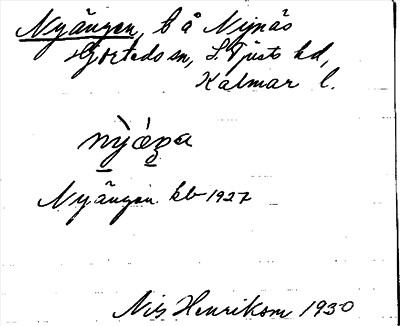 Nyängen, b å Nynäs
Hjorteds sn, S. Tjusts hd,
Kalmar l.
Nyängen kb 1927
Nils Henrikson 1930